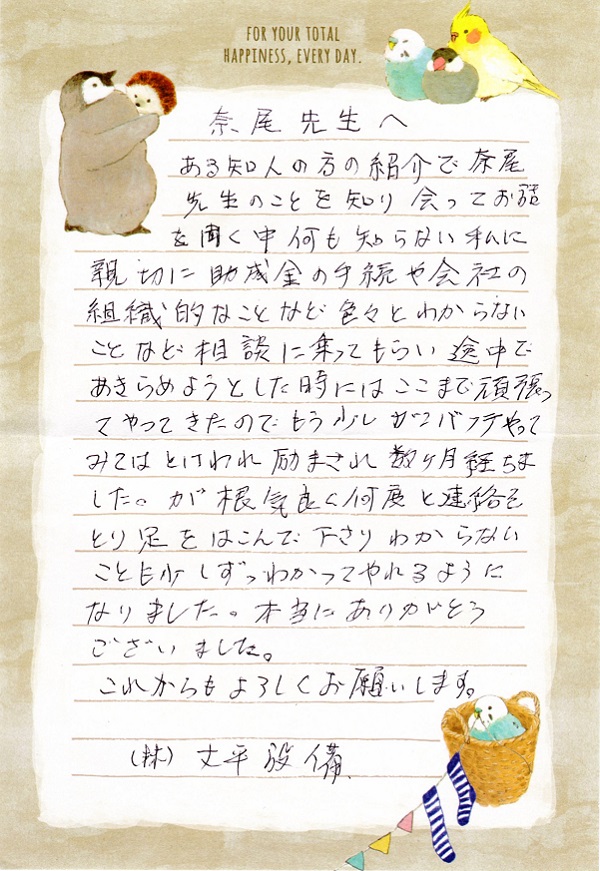 FOR YOUR TOTAL
HAPPINESS, EVERY DAY.
奈尾先生へ
ある知人の方の紹介で奈尾
先生のことを知り会ってお話
を聞く中何も知らない私に
親切に助成金の手続や会社の
組織的なことなど色々とわからない
ことなど相談に乗ってもらい途中で
あきらめようとした時にはここまで頑張っ
てやってきたのでもう少しガンバッテやって
みてはといわれ励まされ数ヶ月経ちま
した。が根気良く何度と連絡を
とり足をはこんで下さりわからない
ことも少しずつわかってやれるように
なりました。本当にありがとう
ございました。
これからもよろしくお願いします。
(株)丈平設備